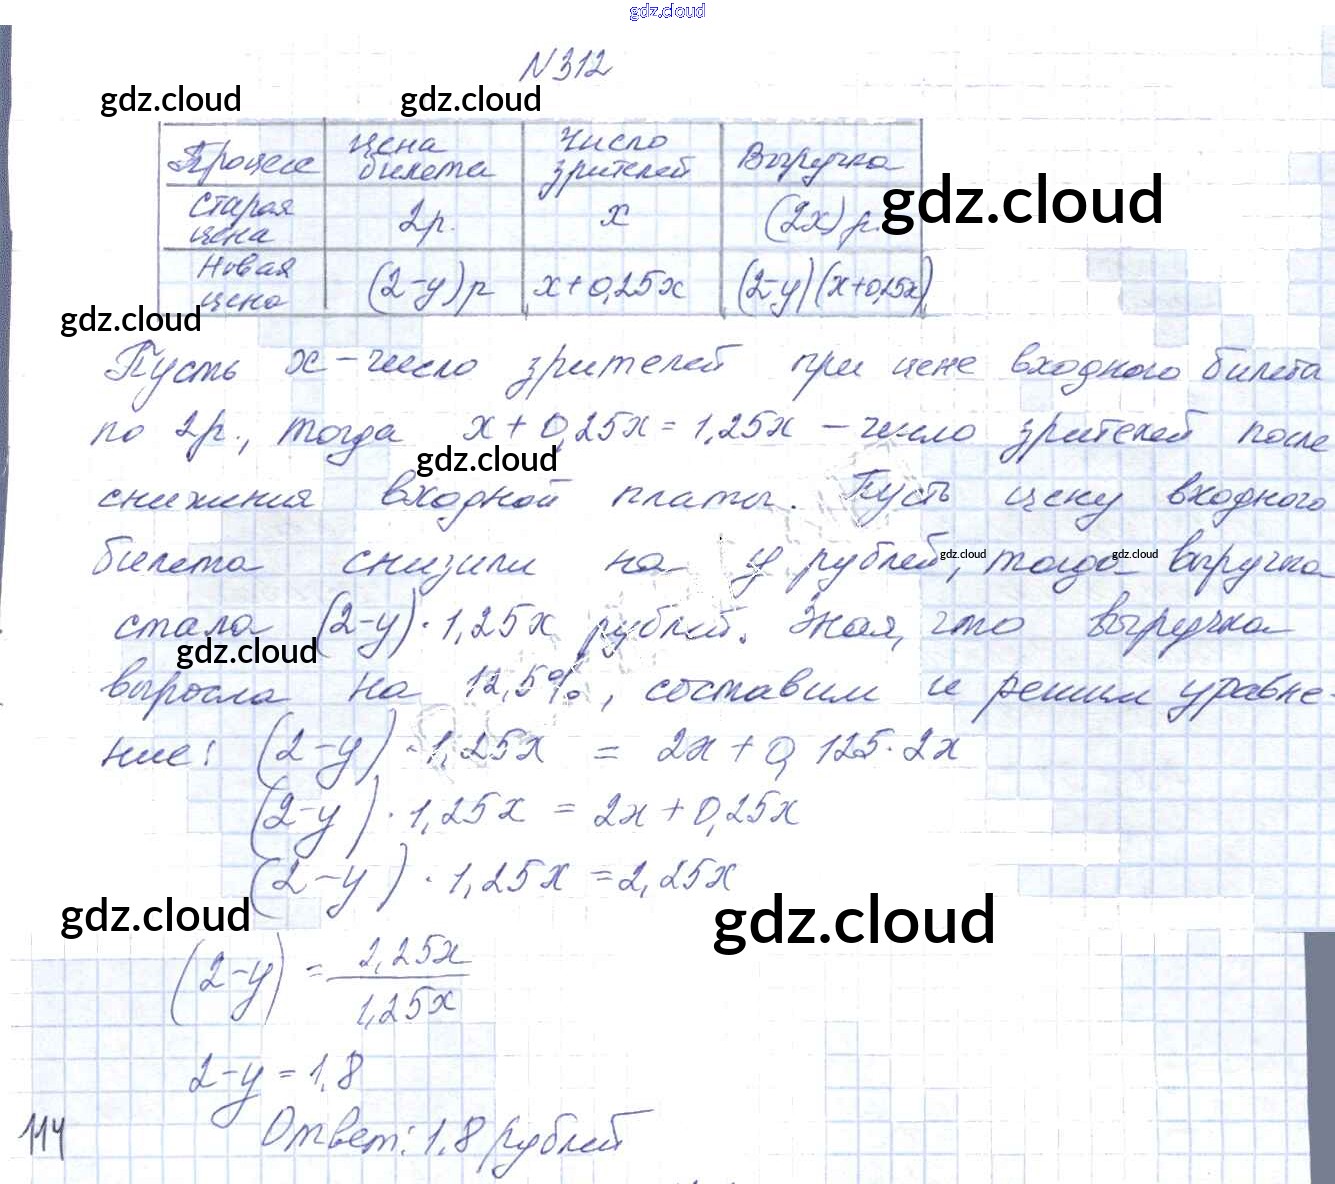 gdz.cloud
N312
gdz.cloud gdz.cloud
Процесс Цена билета Число зрителей Выручка
gdz.cloud
Старая цена 2р. x (2x) р.
Новая цена (2-y) р x+0,25x (2-y)(x+0,25x)
gdz.cloud
Пусть x - число зрителей при цене входного билета
по 2р., тогда x + 0,25x = 1,25x - число зрителей после
gdz.cloud
снижения входной платы. Пусть цену входного
билета снизили на y рублей, тогда выручка
gdz.cloud gdz.cloud
стала (2-y)·1,25x рублей. Зная, что выручка
gdz.cloud
выросла на 12,5%, составим и решим уравне-
ние: (2-y)·1,25x = 2x + 0,125·2x
(2-y)·1,25x = 2x + 0,25x
(2-y)·1,25x = 2,25x
gdz.cloud gdz.cloud
(2-y) = 2,25x / 1,25x
2-y = 1,8
114 Ответ: 1,8 рублей